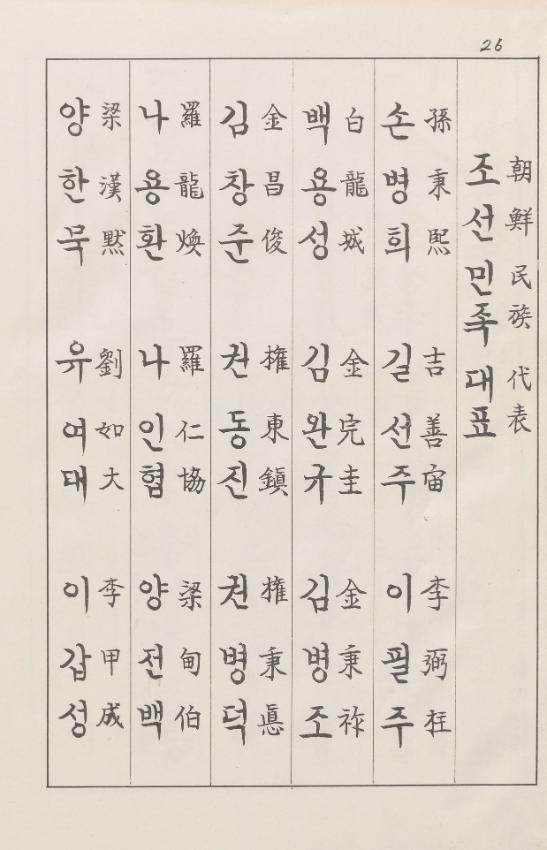 26
朝鮮民族 代表
조선민족 대표
孫秉熙 吉善宙 李弼柱
손병희 길선주 이필주
白龍城 金完圭 金秉祚
백용성 김완규 김병조
金昌俊 權東鎭 權秉悳
김창준 권동진 권병덕
羅龍煥 羅仁協 梁甸伯
나용환 나인협 양전백
梁漢默 劉如大 李甲成
양한묵 유여대 이갑성